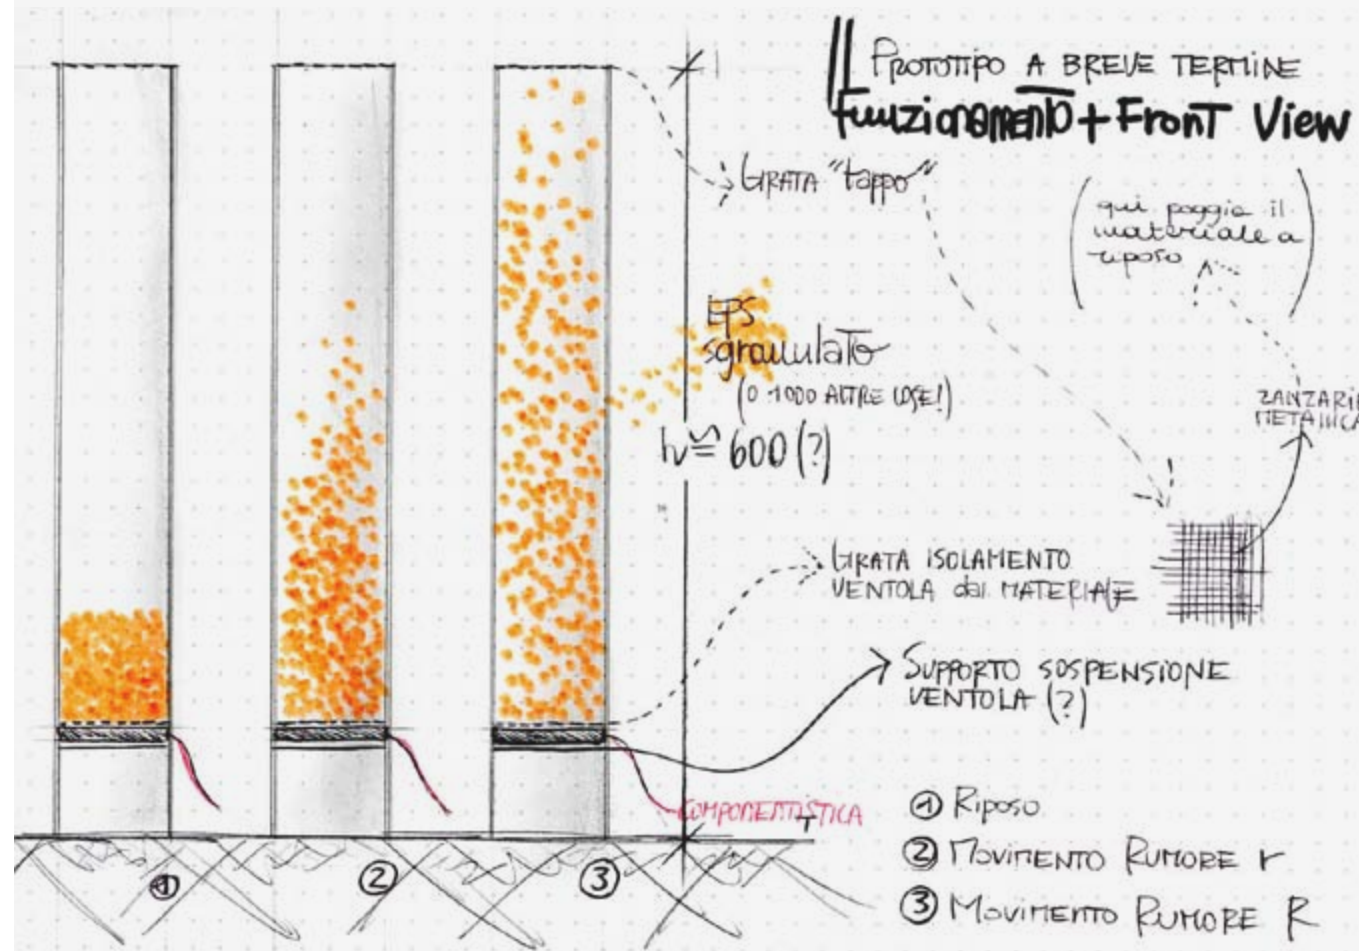 PROTOTIPO A BREVE TERMINE
Funzionamento + Front View
GRATA "tappo"
(qui poggia il
materiale a
riposo)
EPS
sgranulato
(O 1000 ALTRE COSE!)
h ≅ 600 (?)
METALLICA
GRATA ISOLAMENTO
VENTOLA dal MATERIALE
SUPPORTO SOSPENSIONE
VENTOLA (?)
COMPONENTISTICA
① Riposo
② MOVIMENTO RUMORE r
③ MOVIMENTO RUMORE R
① ② ③